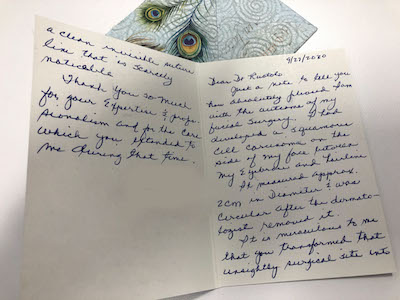 9/23/2020
Dear Dr Rustolo.
Just a note to tell you
how absolutely pleased I am
with the outcome of my
facial surgery. I had
developed a squamous
cell carcinoma on the
side of my face between
my eyebrow and hairline
It measured approx.
2cm in Diameter & was
circular after the dermato-
logist removed it.
It is miraculous to me
that you transformed that
unsightly surgical site into
a clean invisible suture
line that is scarcely
noticeable
Thank you so much
for your Expertise & profes-
sionalism and for the care
which you extended to
me during that time.